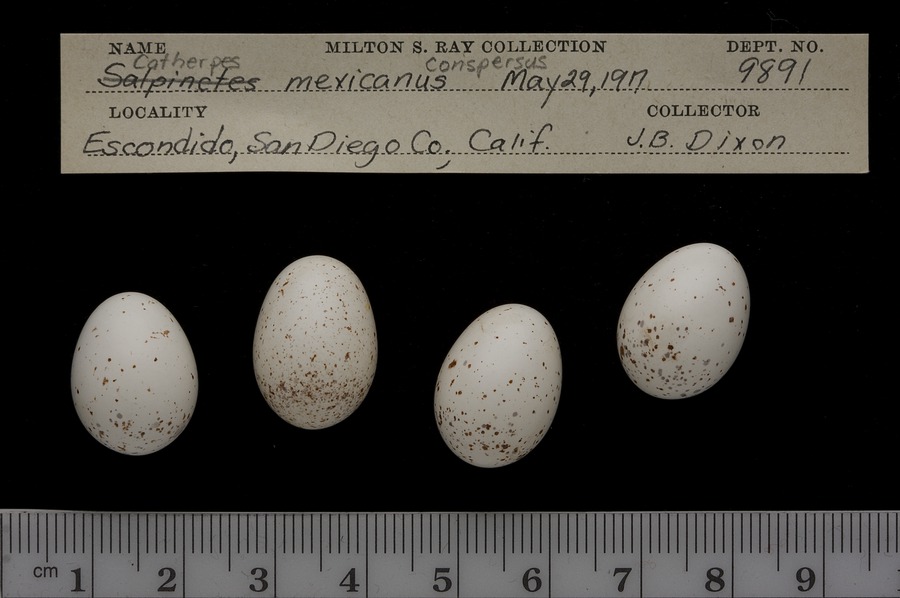 NAME MILTON S. RAY COLLECTION DEPT. NO.
Catherpes conspersus
Salpinctes mexicanus May 29, 1917 9891
LOCALITY COLLECTOR
Escondido, San Diego Co., Calif. J.B. Dixon
cm 1 2 3 4 5 6 7 8 9 1